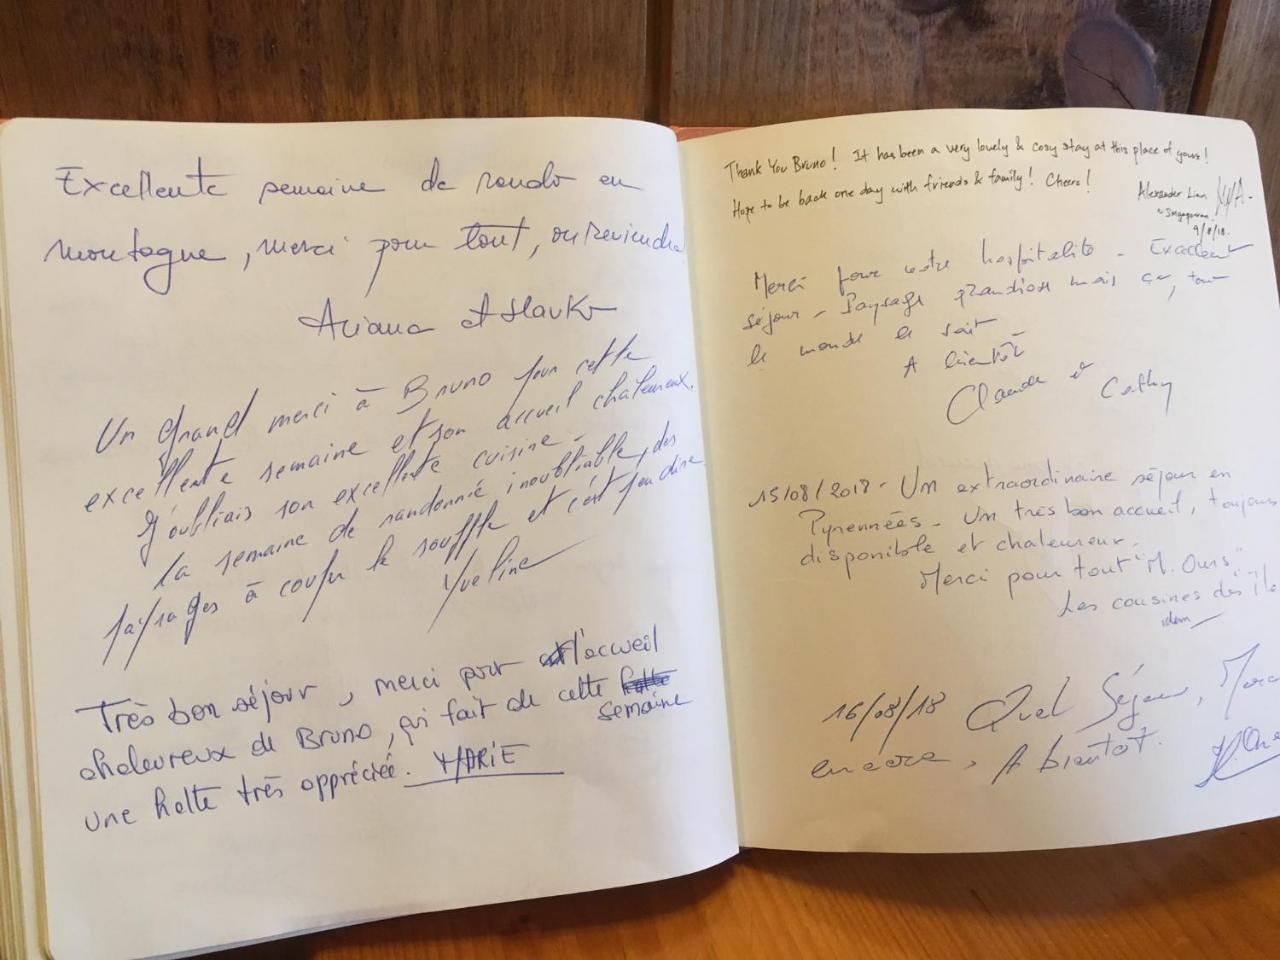 Excellente semaine de rando en
montagne, merci pour tout, on reviendra
Ariana et Slavko
Un grand merci à Bruno pour cette
excellente semaine et son accueil chaleureux.
J'oubliais son excellente cuisine -
La semaine de randonnié inoubliable, des
paysages à couper le souffle et c'est peu dire
Yveline
Très bon séjour, merci pour l'accueil
chaleureux de Bruno, qui fait de cette semaine
une halte très appréciée. MARIE
Thank You Bruno! It has been a very lovely & cosy stay at this place of yours!
Hope to be back one day with friends & family! Cheers!
Alexander Lian
Singaporean
9/8/18.
Merci pour votre hospitalité - Excellent
séjour - Paysage grandiose mais ça, tout
le monde le sait -
A bientôt
Claude et Cathy
15/08/2018 - Un extraordinaire séjour en
Pyrennées - Un très bon accueil, toujours
disponible et chaleureux.
Merci pour tout "M. Ours"
Les cousines des île
16/08/18 Quel Séjour, Merci
encore, A bientôt.